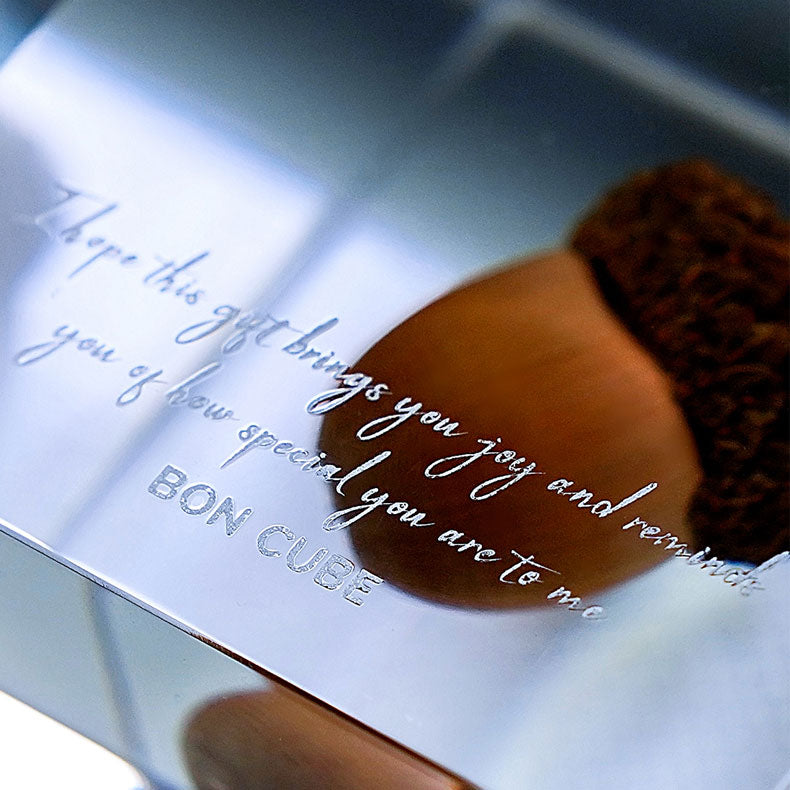 I hope this gift brings you joy and reminds
you of how special you are to me
BON CUBE